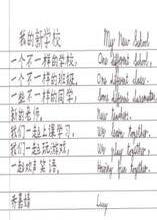 我的新学校 My New School
一个不一样的学校， One different School,
一个不一样的班级， One different class,
一些不一样的同学， Some different classmates,
新的老师， New Teachers,
我们一起上课学习， We learn together,
我们一起玩游戏， We play together,
一起欢声笑语。 Having fun together.
Lucy